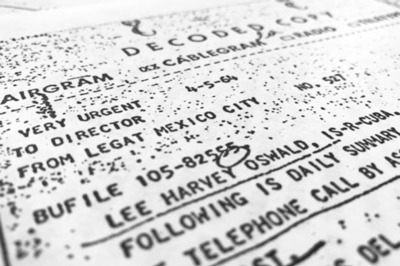 DECODED COPY
AIRGRAM CABLEGRAM RADIO
VERY URGENT 4-5-64 NO. 527
TO DIRECTOR
FROM LEGAT MEXICO CITY
BUFILE 105-82555
LEE HARVEY OSWALD, IS-R-CUBA
FOLLOWING IS DAILY SUMMARY
TELEPHONE CALL BY